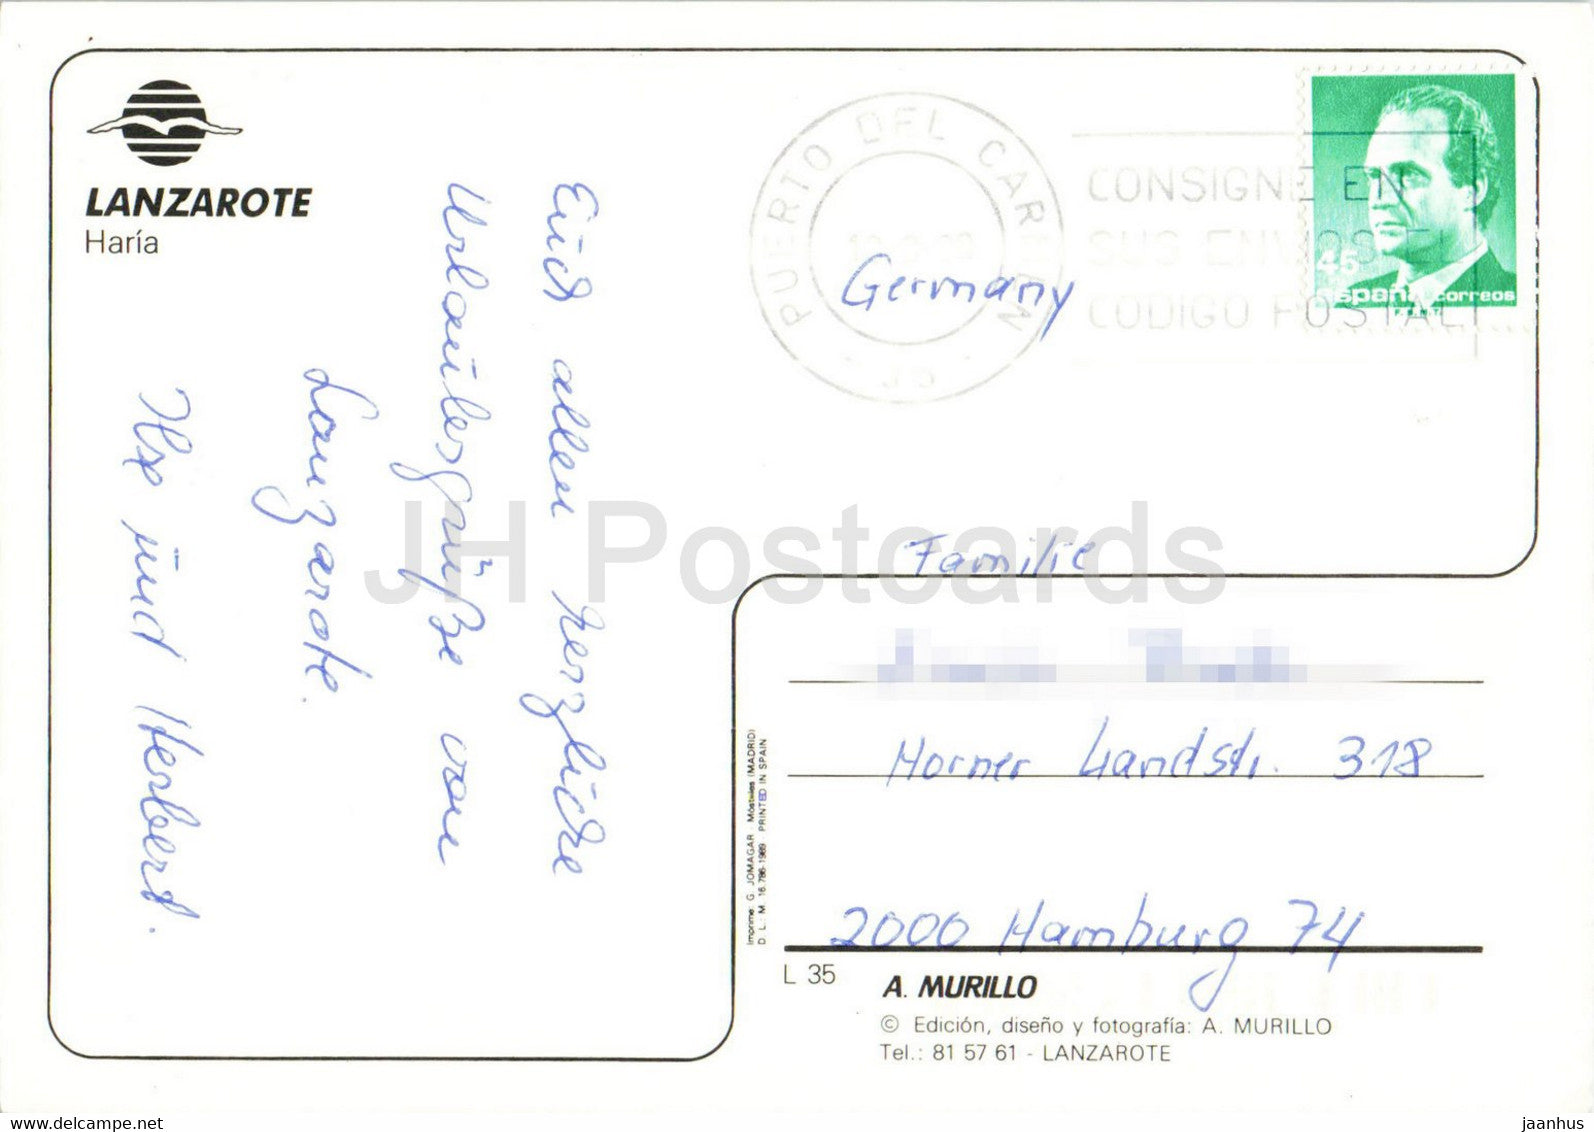 LANZAROTE
Haría
Euch allen herzliche
Urlaubsgrüße von
Lanzarote.
Ilse und Herbert.
PUERTO DEL CARMEN
CONSIGNE EN
SUS ENVIOS EL
CODIGO POSTAL
45
españa correos
Germany
Familie
Horner Landstr. 318
2000 Hamburg 74
Imprime: G. JOMAGAR - Móstoles (MADRID)
D. L.: M. 16.786-1989 - PRINTED IN SPAIN
L 35
A. MURILLO
© Edición, diseño y fotografía: A. MURILLO
Tel.: 81 57 61 - LANZAROTE
JH Postcards
www.delcampe.net
jaanhus